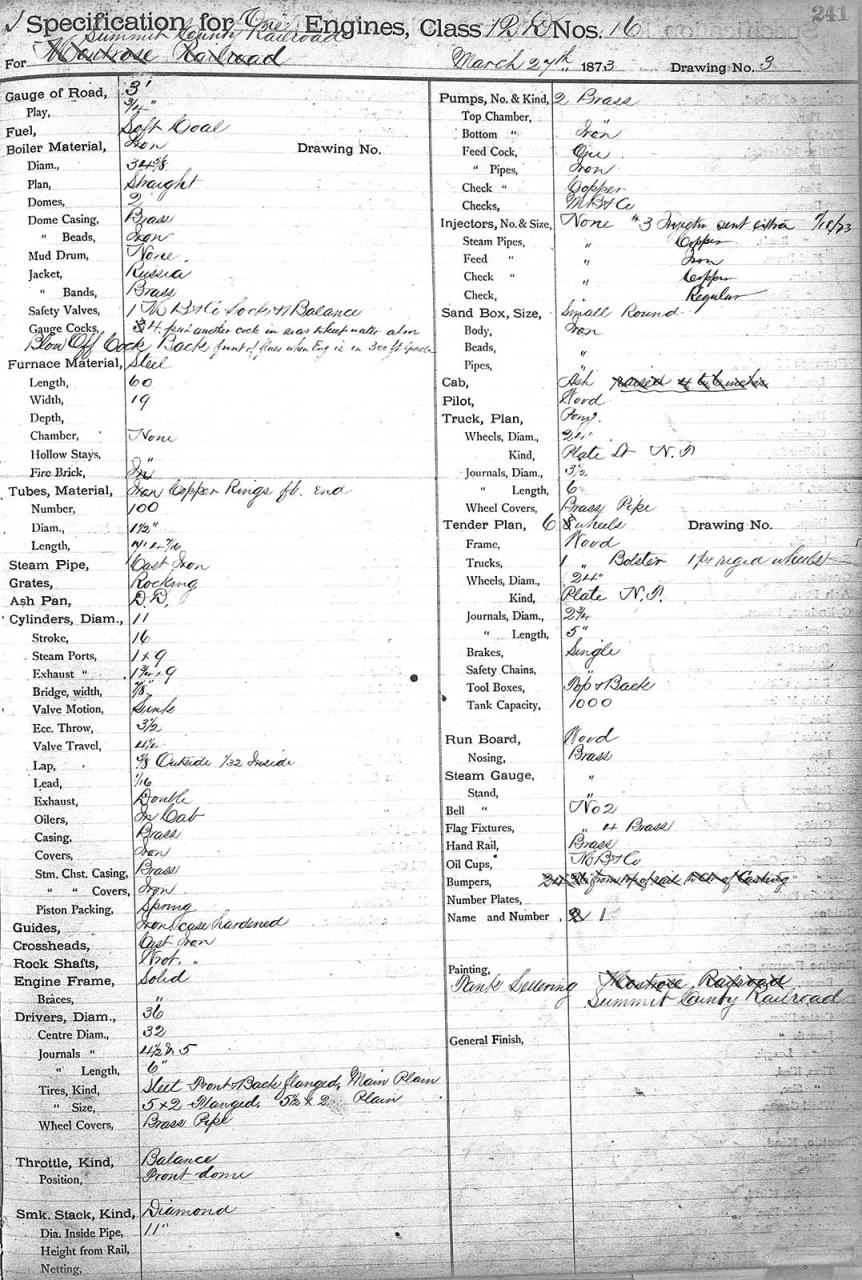 241
Specification for One Engines, Class 12 D Nos. 16
Summit County Railroad
For Montrose Railroad March 27th 1873 Drawing No. 3
Gauge of Road, 3'
Play, 3/4"
Fuel, Soft Coal
Boiler Material, Iron Drawing No.
Diam., 34 5/8
Plan, Straight
Domes, 2
Dome Casing, Brass
" Beads, Iron
Mud Drum, None.
Jacket, Russia
" Bands, Brass
Safety Valves, 1 M B & Co Lock & 1 Balance
Gauge Cocks, 4 another cock in so as to keep water
Blow Off Cock Back front of flues when Eng is on 300 ft Grade
Furnace Material, Steel
Length, 60
Width, 19
Depth,
Chamber, None
Hollow Stays, "
Fire Brick, In
Tubes, Material, Iron Copper Rings ft. end
Number, 100
Diam., 1 1/2"
Length,
Steam Pipe, Cast Iron
Grates, Rocking
Ash Pan, D.D.
Cylinders, Diam., 11
Stroke, 16
Steam Ports, 1 x 9
Exhaust " 1 3/4 x 9
Bridge, width, 7/8
Valve Motion, Link
Ecc. Throw, 3 1/2
Valve Travel,
Lap, 5/8 Outside 1/32 Inside
Lead, 1/16
Exhaust, Double
Oilers, In Cab
Casing, Brass
Covers, Iron
Stm. Chst. Casing, Brass
" " Covers, Iron
Piston Packing, Spring
Guides, Iron case hardened
Crossheads, Cast Iron
Rock Shafts, Wrot. "
Engine Frame, Solid
Braces, "
Drivers, Diam., 36
Centre Diam., 32
Journals " 4 1/2 & 5
" Length, 6"
Tires, Kind, Steel Front & Back flanged, Main Plain
" Size, 5 x 2 Flanged. 5 1/2 x 2 Plain
Wheel Covers, Brass Pipe
Throttle, Kind, Balance
Position, Front dome
Smk. Stack, Kind, Diamond
Dia. Inside Pipe, 11"
Height from Rail,
Netting,
Pumps, No. & Kind, 2 Brass
Top Chamber, "
Bottom " Iron
Feed Cock, One
" Pipes, Iron
Check " Copper
Checks, M B & Co
Injectors, No. & Size, None "3 Injector sent extra
Steam Pipes, " Copper
Feed " " Iron
Check " " Copper
Check, " Regular
Sand Box, Size, Small Round
Body, Iron
Beads, "
Pipes, "
Cab, Ash raised
Pilot, Wood
Truck, Plan, Pony.
Wheels, Diam., 24"
Kind, Plate N.P.
Journals, Diam., 3 1/2
" Length, 6
Wheel Covers, Brass Pipe
Tender Plan, 6 8 wheels Drawing No.
Frame, Wood
Trucks, 1 " Bolster 1 pr rigid wheels
Wheels, Diam., 24"
Kind, Plate N.P.
Journals, Diam., 2 3/4
" Length, 5"
Brakes, Single
Safety Chains,
Tool Boxes, Top & Back
Tank Capacity, 1000
Run Board, Wood
Nosing, Brass
Steam Gauge, "
Stand, "
Bell " No 2
Flag Fixtures, " 4 Brass
Hand Rail, Brass
Oil Cups, M B & Co
Bumpers, from top of rail to of Casting
Number Plates,
Name and Number 1
Painting,
Tank Lettering Montrose Railroad
Summit County Railroad
General Finish,